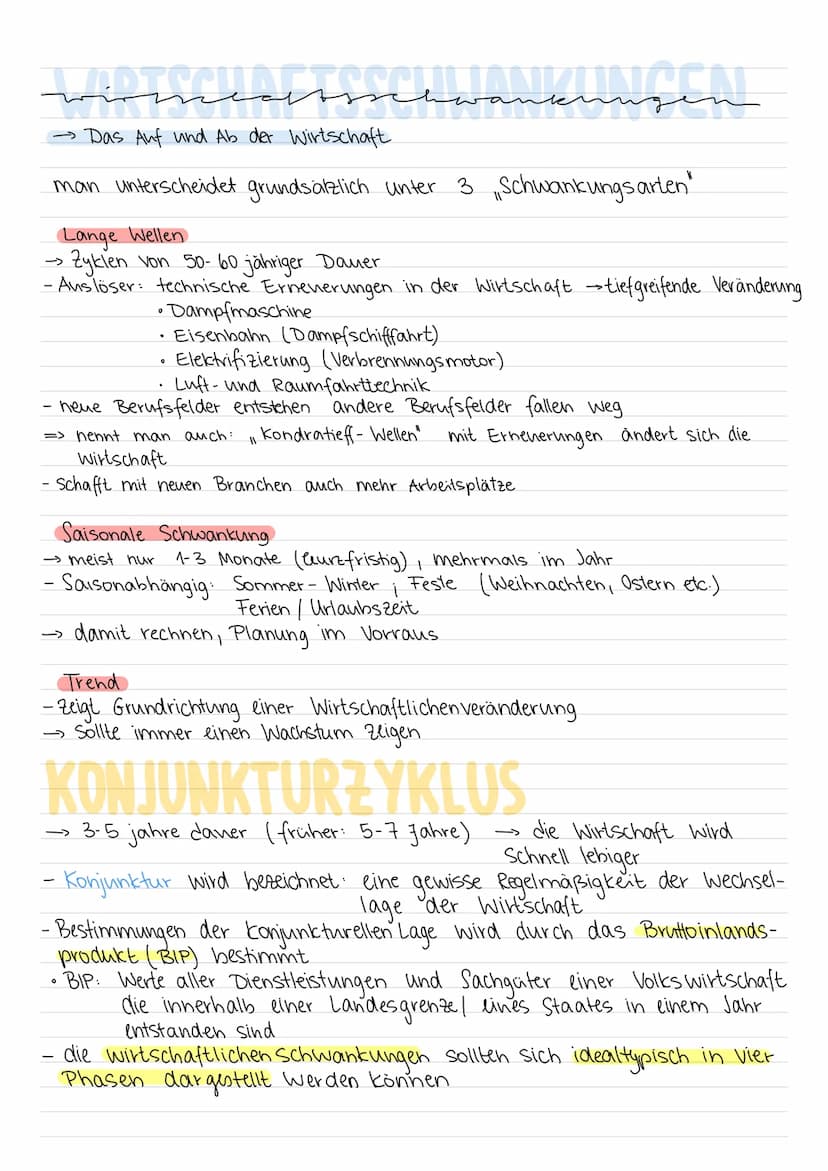 WIRTSCHAFTSSCHWANKUNGEN
wirtschaftsschwankungen
→ Das Auf und Ab der Wirtschaft
man unterscheidet grundsätzlich unter 3 „Schwankungsarten"
Lange Wellen
→ Zyklen von 50-60 jähriger Dauer
- Auslöser: technische Erneuerungen in der Wirtschaft → tiefgreifende Veränderung
• Dampfmaschine
• Eisenbahn (Dampfschifffahrt)
• Elektrifizierung (Verbrennungsmotor)
• Luft- und Raumfahrttechnik
- neue Berufsfelder entstehen andere Berufsfelder fallen weg
=> nennt man auch: „Kondratieff-Wellen" mit Erneuerungen ändert sich die
Wirtschaft
- Schafft mit neuen Branchen auch mehr Arbeitsplätze
Saisonale Schwankung
→ meist nur 1-3 Monate (kurzfristig), mehrmals im Jahr
- Saisonabhängig: Sommer - Winter ; Feste (Weihnachten, Ostern etc.)
Ferien / Urlaubszeit
→ damit rechnen, Planung im Vorraus
Trend
- zeigt Grundrichtung einer Wirtschaftlichenveränderung
→ Sollte immer einen Wachstum zeigen
KONJUNKTURZYKLUS
→ 3-5 jahre dauer (früher: 5-7 Jahre) → die Wirtschaft wird
Schnell lebiger
- Konjunktur wird bezeichnet: eine gewisse Regelmäßigkeit der Wechsel-
lage der Wirtschaft
- Bestimmungen der konjunkturellen Lage wird durch das Bruttoinlands-
produkt (BIP) bestimmt
• BIP: Werte aller Dienstleistungen und Sachgüter einer Volkswirtschaft
die innerhalb einer Landesgrenze / eines Staates in einem Jahr
entstanden sind
- die wirtschaftlichen Schwankungen sollten sich idealtypisch in vier
Phasen dargestellt werden können